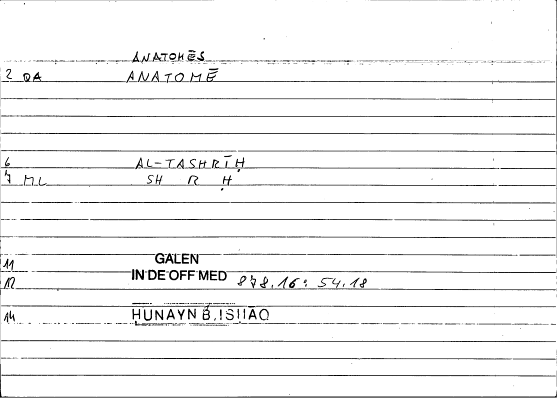 ANATOMĒS
2 QA ANATOMĒ
6 AL-TASHRĪḤ
7 ML SH R Ḥ
11 GALEN
12 IN DE OFF MED 878.16: 54.18
14 ḤUNAYN B. ISḤĀQ